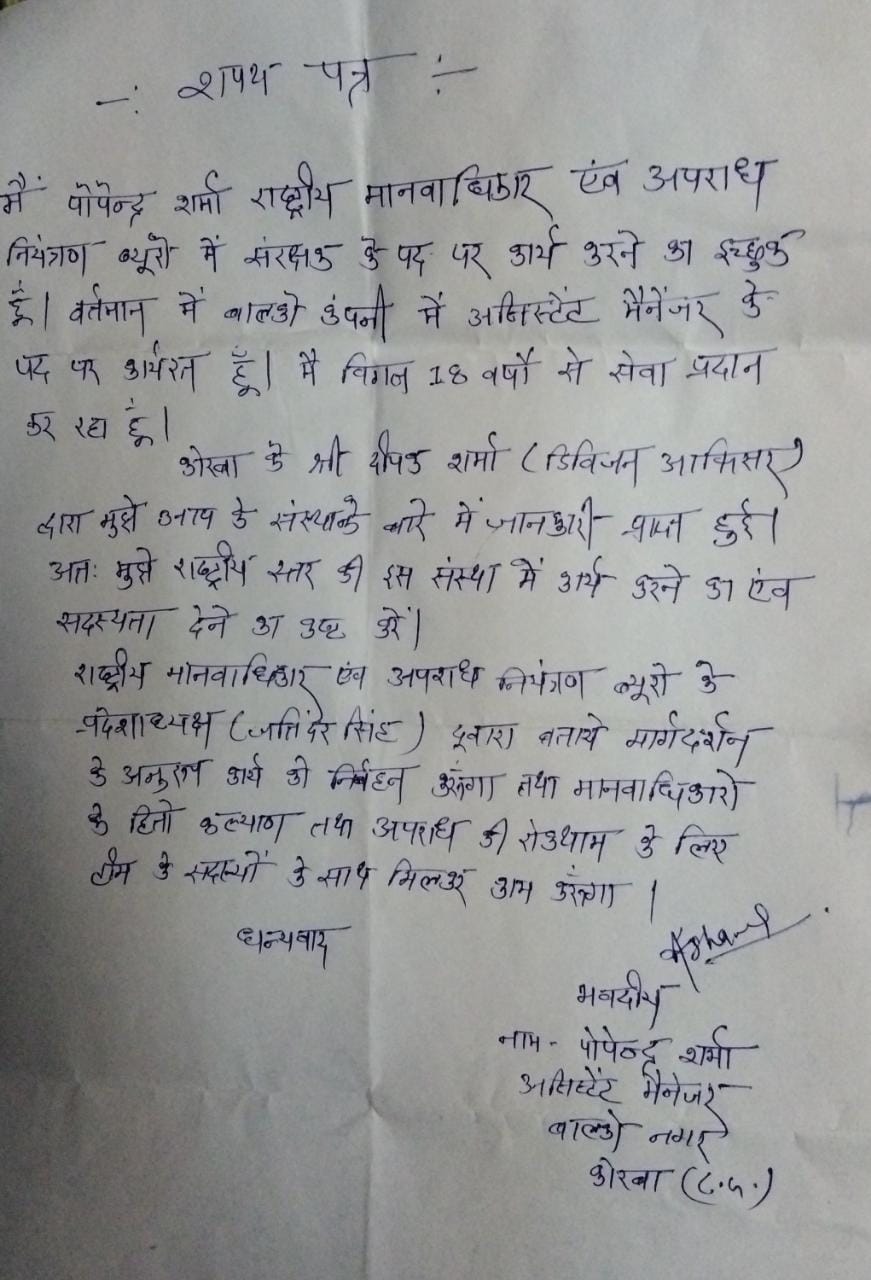 -: शपथ पत्र :-
मैं पोपेन्द्र शर्मा राष्ट्रीय मानवाधिकार एंव अपराध
नियंत्रण ब्यूरो में संरक्षक के पद पर कार्य करने का इच्छुक
हूँ। वर्तमान में बालको कंपनी में असिस्टेंट मैनेंजर के
पद पर कार्यरत हूँ। मै विगत 18 वर्षो से सेवा प्रदान
कर रहा हूं।
कोरबा के श्री दीपक शर्मा (डिविजन आफिसर)
द्वारा मुझे आप के संस्था के बारे में जानकारी प्राप्त हुई।
अतः मुझे राष्ट्रीय स्तर की इस संस्था में कार्य करने का एंव
सदस्यता देने का कष्ट करें।
राष्ट्रीय मानवाधिकार एंव अपराध नियंत्रण ब्यूरो के
प्रदेशाध्यक्ष (जतिंदर सिंह) दूवारा बताये मार्गदर्शन
के अनुरूप कार्य को निर्वहन करूंगा तथा मानवाधिकारो
के हितो कल्याण तथा अपराध की रोकथाम के लिए
टीम के सदस्यों के साथ मिलकर काम करूंगा ।
धन्यवाद
भवदीय
नाम - पोपेन्द्र शर्मा
असिस्टेंट मैनेजर
बालको नगर
कोरबा (C.G.)